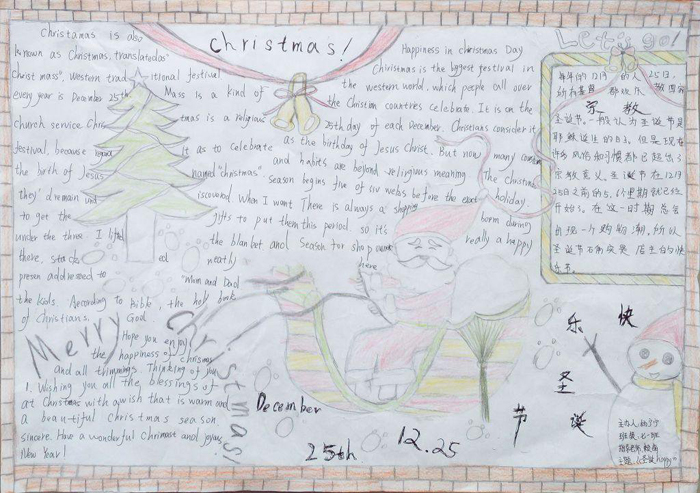 Christmas!
Let's go!
Christmas is also
known as Christmas, translated as"
Christ mass", western trad itional festival
every year is December 25th. Mass is a kind of
church service. Chris tmas is a religious
festival, because it as to celebrate
the birth of Jesus named "christmas".
they' demain und iscovered When I want
to get the gifts to put them
under the three. I lifted the blanket and
there, stocks ed neatly
presen addressed to "Mum and Dad
the kids. According to Bible, the holy book
of Christians, God
Happiness in christmas Day
Christmas is the biggest festival in
the western world. which people all over
the Christian countries celebrate. It is on the
25th day of each December. Christians consider it
as the birthday of Jesus Christ. But now many
and habits are beyond religious meaning
season begins five of six webs before the exact
The christmas
holiday.
There is always a shopping
born during
this period so it's
really a happy
season for shop
here
Merry
Christmas!
Hope you enjoy
the happiness of christmas
and all trimmings. Thinking of you
1. Wishing you all the blessings of
at Christmas with a wish that is warm and
a beautiful christmas season.
sincere. Have a wonderful Chrimast and joyous
New Year!
December
25th
12.25
宗教
圣诞节,一般认为圣诞节是
耶稣诞生的日子,但是现在
许多风俗和习惯都已超出了
宗教意义,圣诞节在12月
25日之前的5,6个星期就已经
开始了。在这一时期总会
出现一个购物潮,所以
圣诞节确实是店主的快
乐节。
快
乐
圣
诞
节